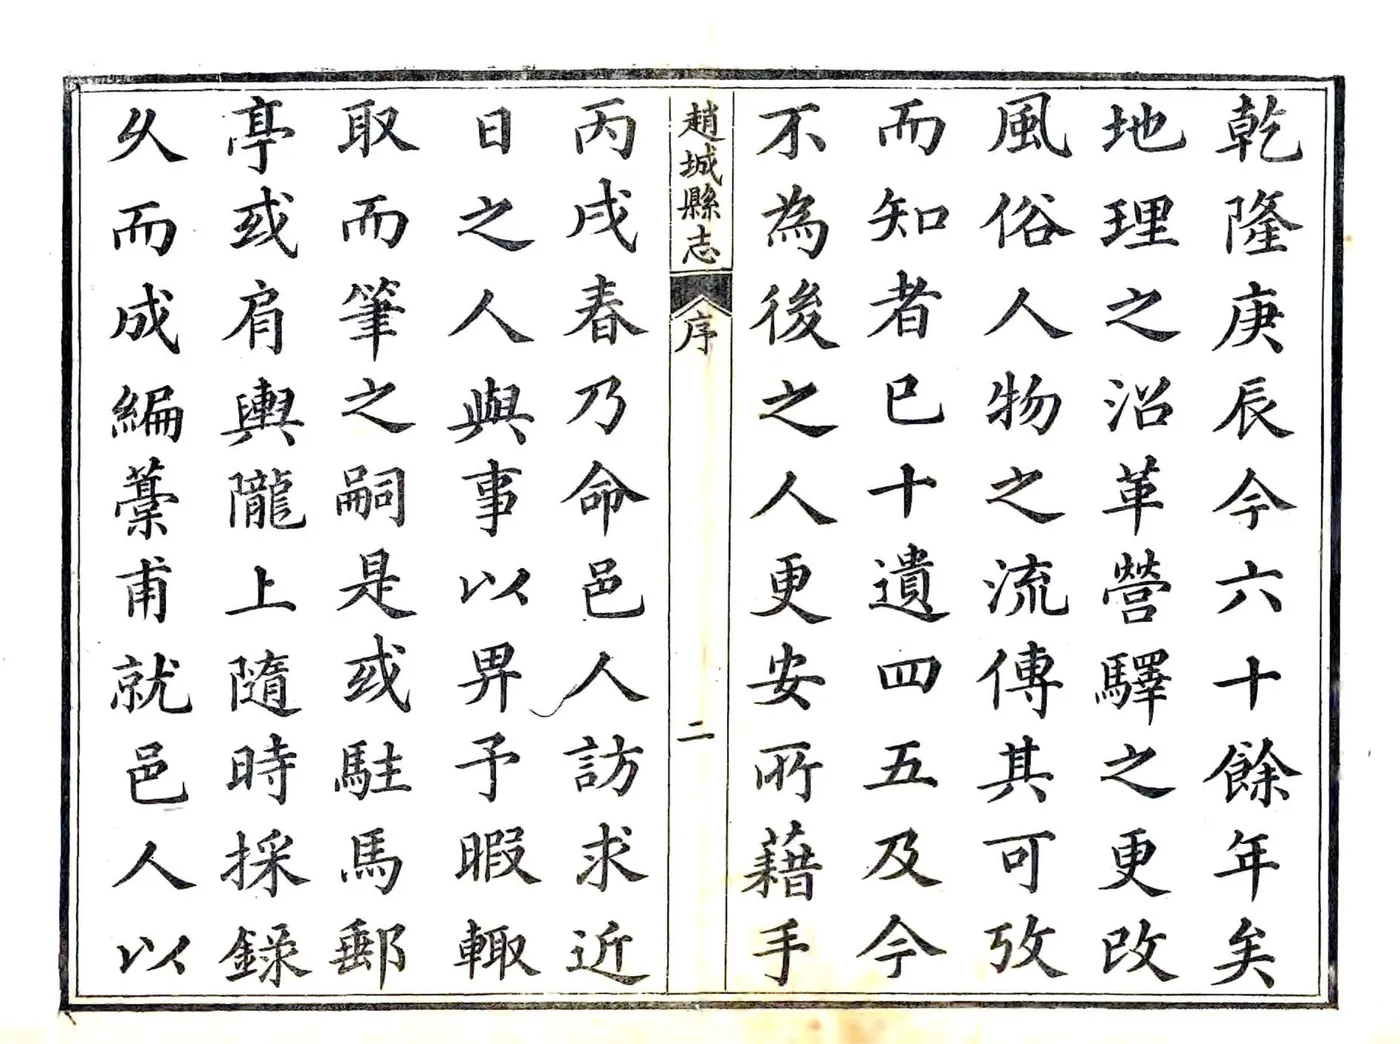 乾隆庚辰今六十餘年矣
地理之沿革營驛之更改
風俗人物之流傳其可攷
而知者已十遺四五及今
不為後之人更安所藉手
趙城縣志
序
二
丙戌春乃命邑人訪求近
日之人與事以畀予暇輙
取而筆之嗣是或駐馬郵
亭或肩輿隴上隨時採錄
久而成編藁甫就邑人以